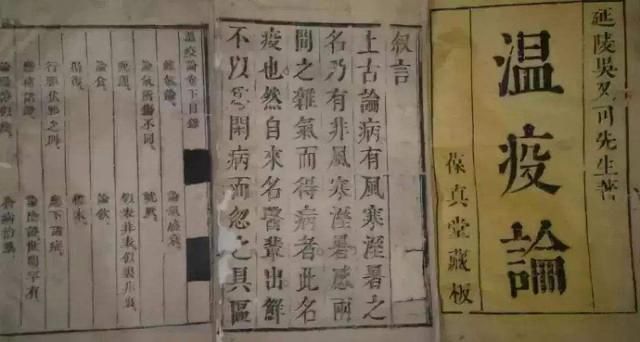 延陵吳又可先生著
温疫論
葆真堂藏板
叙言
上古論病有風寒溼暑之
名乃有非風寒溼暑感兩
間之雜氣而得病者此名
疫也然自來名醫輩出鮮
不以爲閑病而忽之具區
温疫論卷下目錄
雜氣論
論氣盛衰
論氣所傷不同
蚘厥
呃逆
似表非表似裏非裏
論食
論飲
損復
標本
行邪伏邪之別
應下諸症
應補諸症
論陰證世間罕有